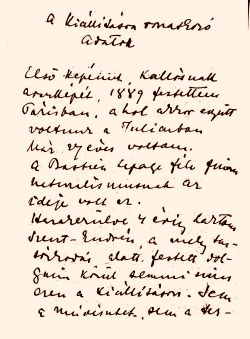 A kiállításra vonatkozó
adatok
Első képeimet,
arcképét, 1889 festettem
Párisban, a hol akkor együtt
voltunk a Julianban
már 27 éves voltam.
A Bastien Lepage féle finom
naturalismusnak az
ideje volt ez.
Hazakerülve 4 évig laktam
Szent-Endrén, a mely tar-
tózkodás alatt festett dol-
gaim közül semmi sincs
ezen a kiállításon. Sem
a művésztet, sem a